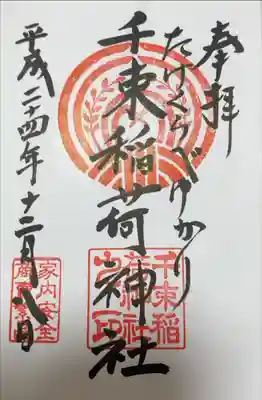 奉拝
たけくらべゆかり
千束稲荷神社
平成二十四年十二月八日
千束稲
荷神社
之印
家内安全
産業繁栄